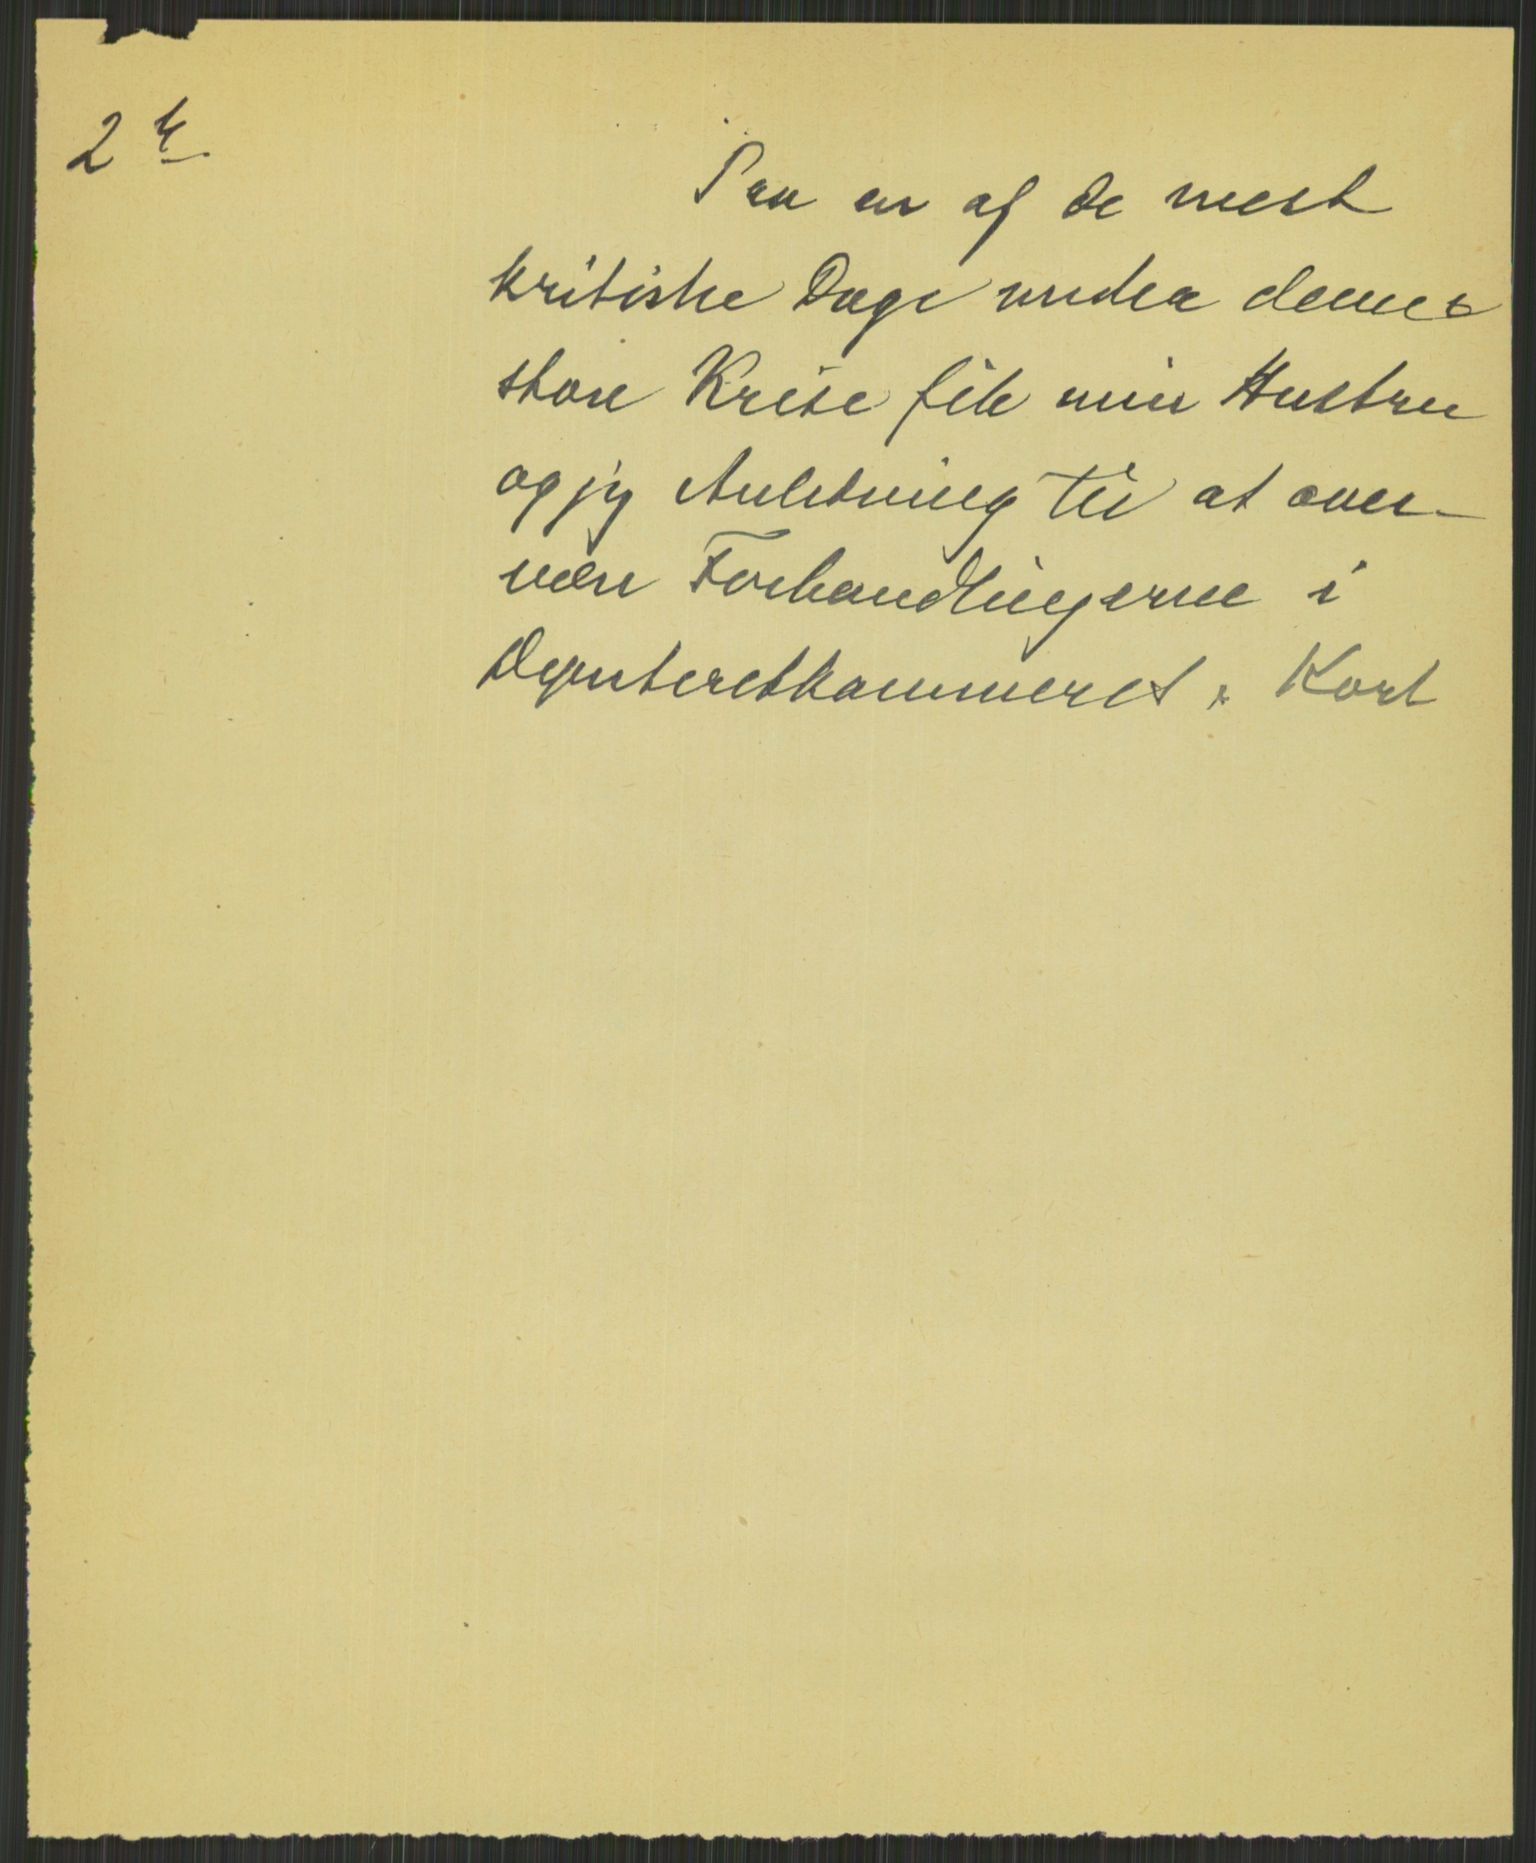 2
Paa en af de mest
kritiske Dage under denne
store Krise fik min Hustru
og jeg Anledning til at over-
være Forhandlingerne i
Deputeretkammeret. Kort